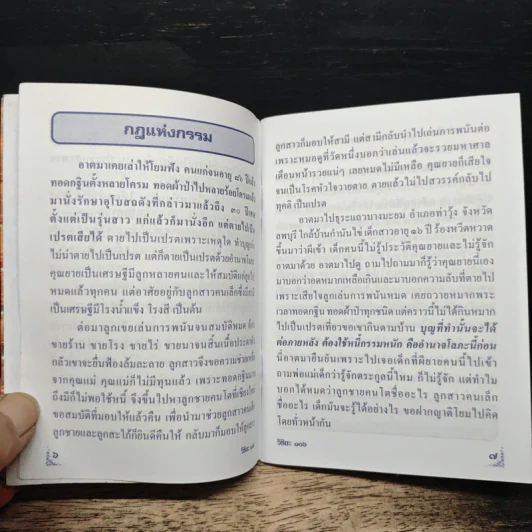 กฎแห่งกรรม
อาตมาเคยเล่าให้โยมฟัง คนแก่จนอายุ ๘๖ ปีแล้ว
ทอดกฐินตั้งหลายไตรม ทอดผ้าป่าไปหลายร้อยไตรมแล้ว
มานั่งรักษาอุโบสถดังที่กล่าวมาแล้วถึง ๓๐ ปีเศษ
ตั้งแต่เป็นรุ่นสาว แก่แล้วก็มานั่งอีก แต่ตายไปเป็น
เปรตเสียได้ ตายไปเป็นเปรตเพราะเหตุใด ทำบุญแล้ว
ไม่น่าตายไปเป็นเปรต แต่ก็ตายเป็นเปรตด้วยอำนาจโลภะ
คุณยายเป็นเศรษฐีมีลูกหลายคนและให้สมบัติแก่ลูกไป
หมดแล้วทุกคน แต่อาศัยอยู่กับลูกสาวคนเล็กซึ่งมีสามี
เป็นเศรษฐีมีโรงน้ำแข็ง โรงสี เป็นต้น
ต่อมาลูกเขยเล่นการพนันจนสมบัติหมด ต้อง
ขายร้าน ขายโรง ขายไร่ ขายนาจนสิ้นเนื้อประดาตัว
กลัวเขาจะยื่นฟ้องล้มละลาย ลูกสาวจึงขอความช่วยเหลือ
จากคุณแม่ คุณแม่ก็ไม่มีทุนแล้ว เพราะทอดกฐินมาก
ถึงมีก็ไม่พอใช้หนี้ จึงขึ้นไปหาลูกชายคนโตที่เชียงใหม่
ขอสมบัติที่มอบให้แล้วคืน เพื่อนำมาช่วยลูกสาวคนเล็ก
ลูกชายและลูกสะใภ้ก็ยินดีคืนให้ กลับมาก็มอบให้ลูกสาว
๖
วิริยะ ๑๐๖
ลูกสาวก็มอบให้สามี แต่สามีกลับนำไปเล่นการพนันต่อ
เพราะหมอดูที่วัดหนึ่งบอกว่าเล่นแล้วจะรวยมหาศาล
เดือนหน้ารวยแน่ๆ เลยหมดไม่มีเหลือ คุณยายก็เสียใจ
จนเป็นโรคหัวใจวายตาย ตายแล้วไม่ไปสวรรค์กลับไป
ทุคติ เป็นเปรต
อาตมาไปธุระแถวบางมะยม อำเภอท่าวุ้ง จังหวัด
ลพบุรี ใกล้บ้านกำนันไข่ เด็กสาวอายุ ๑๖ ปี ร้องหวีดหวาด
ขึ้นมาว่าผีเข้า เด็กคนนี้ไม่รู้ประวัติคุณยายและไม่รู้จัก
อาตมาด้วย อาตมาไปดู ถามไปถามมาก็รู้ว่าคุณยายนี้เอง
มาบอกว่าอดหยากเหลือเกินและมาบอกความลับที่ตายไป
เพราะเสียใจลูกเล่นการพนันหมด เคยถวายหมากพระ
เวลาทอดกฐิน ทอดผ้าป่าทุกชนิด แต่คราวนี้ไม่ได้กินหมาก
ไปเป็นเปรตเที่ยวขอเขากินตามบ้าน บุญที่ทำนั้นจะได้
ต่อภายหลัง ต้องใช้หนี้กรรมหนัก คืออำนาจโลภะนี้ก่อน
นี่อาตมายืนยันเพราะไปเจอเด็กที่ผียายคนนี้ไปเข้า
ถามพ่อแม่เด็กว่ารู้จักตระกูลนี้ไหม ก็ไม่รู้จัก แต่ทำไม
บอกได้หมดว่าลูกชายคนโตชื่ออะไร ลูกสาวคนเล็ก
ชื่ออะไร เด็กมันจะรู้ได้อย่างไร ขอฝากญาติโยมไปคิด
โดยทั่วหน้ากัน
วิริยะ ๑๐๖
๗